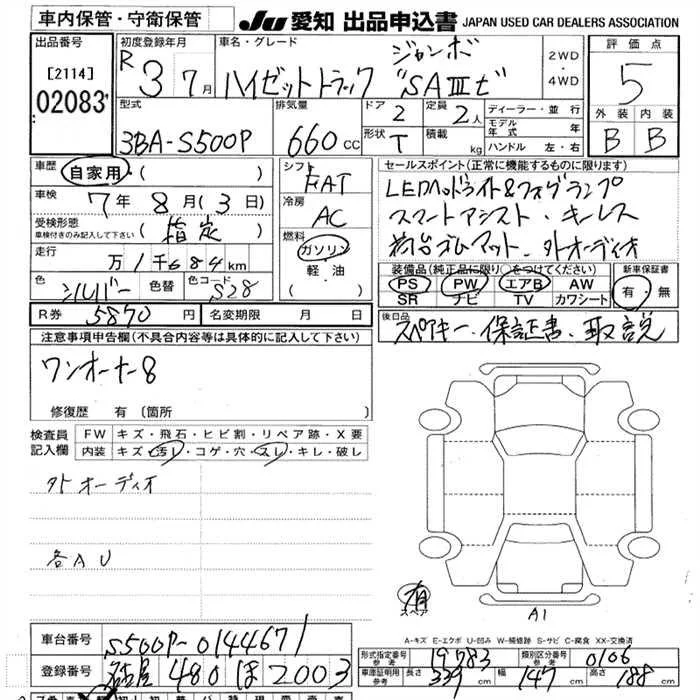 車内保管・守衛保管
JU 愛知 出品申込書 JAPAN USED CAR DEALERS ASSOCIATION
出品番号
[2114]
02083
初度登録年月
R 3 7月
車名・グレード
ジャンボ
ハイゼットトラック "SAⅢt"
2WD
・
4WD
評価点
5
外装 内装
B B
型式
3BA-S500P
排気量
660 CC
ドア 2
定員 2人
形状 T
積載 kg
ディーラー・並行
モデル年式 年
ハンドル 左・右
車歴 自家用 ( )
車検 7年 8月 (3日)
受検形態
車検付きのみ記入して下さい
(指定)
走行 万1千684km
色 シルバー 色替 色コード S28
シフト FAT
冷房 AC
燃料
ガソリン
軽・油
セールスポイント(正常に機能するものに限ります)
LEDヘッドライト&フォグランプ
スマートアシスト・キーレス
荷台ゴムマット・外オーディオ
装備品(純正品に限り○をつけてください)
PS PW エアB AW
SR ナビ TV カワシート
新車保証書
有・無
R券 5870 円 名変期限 月 日
後日品
スペアキー・保証書・取説
注意事項申告欄(不具合内容等は具体的に記入して下さい)
ワンオーナー8
修復歴 有 (箇所 )
検査員記入欄
FW キズ・飛石・ヒビ割・リペア跡・X要
内装 キズ・汚れ・コゲ・穴・スレ・キレ・破レ
外オーディオ
各AU
有
スペア
A1
A-キズ E-エクボ U-凹み W-補修跡 S-サビ C-腐食 XX-交換済
車台番号 S500P-0144671
登録番号 名古屋 480 ほ 2003
形式指定番号 参考 19783 類別区分番号 参考 0106
車庫証明用 参考 長さ 339 cm 幅 147 cm 高さ 188 cm